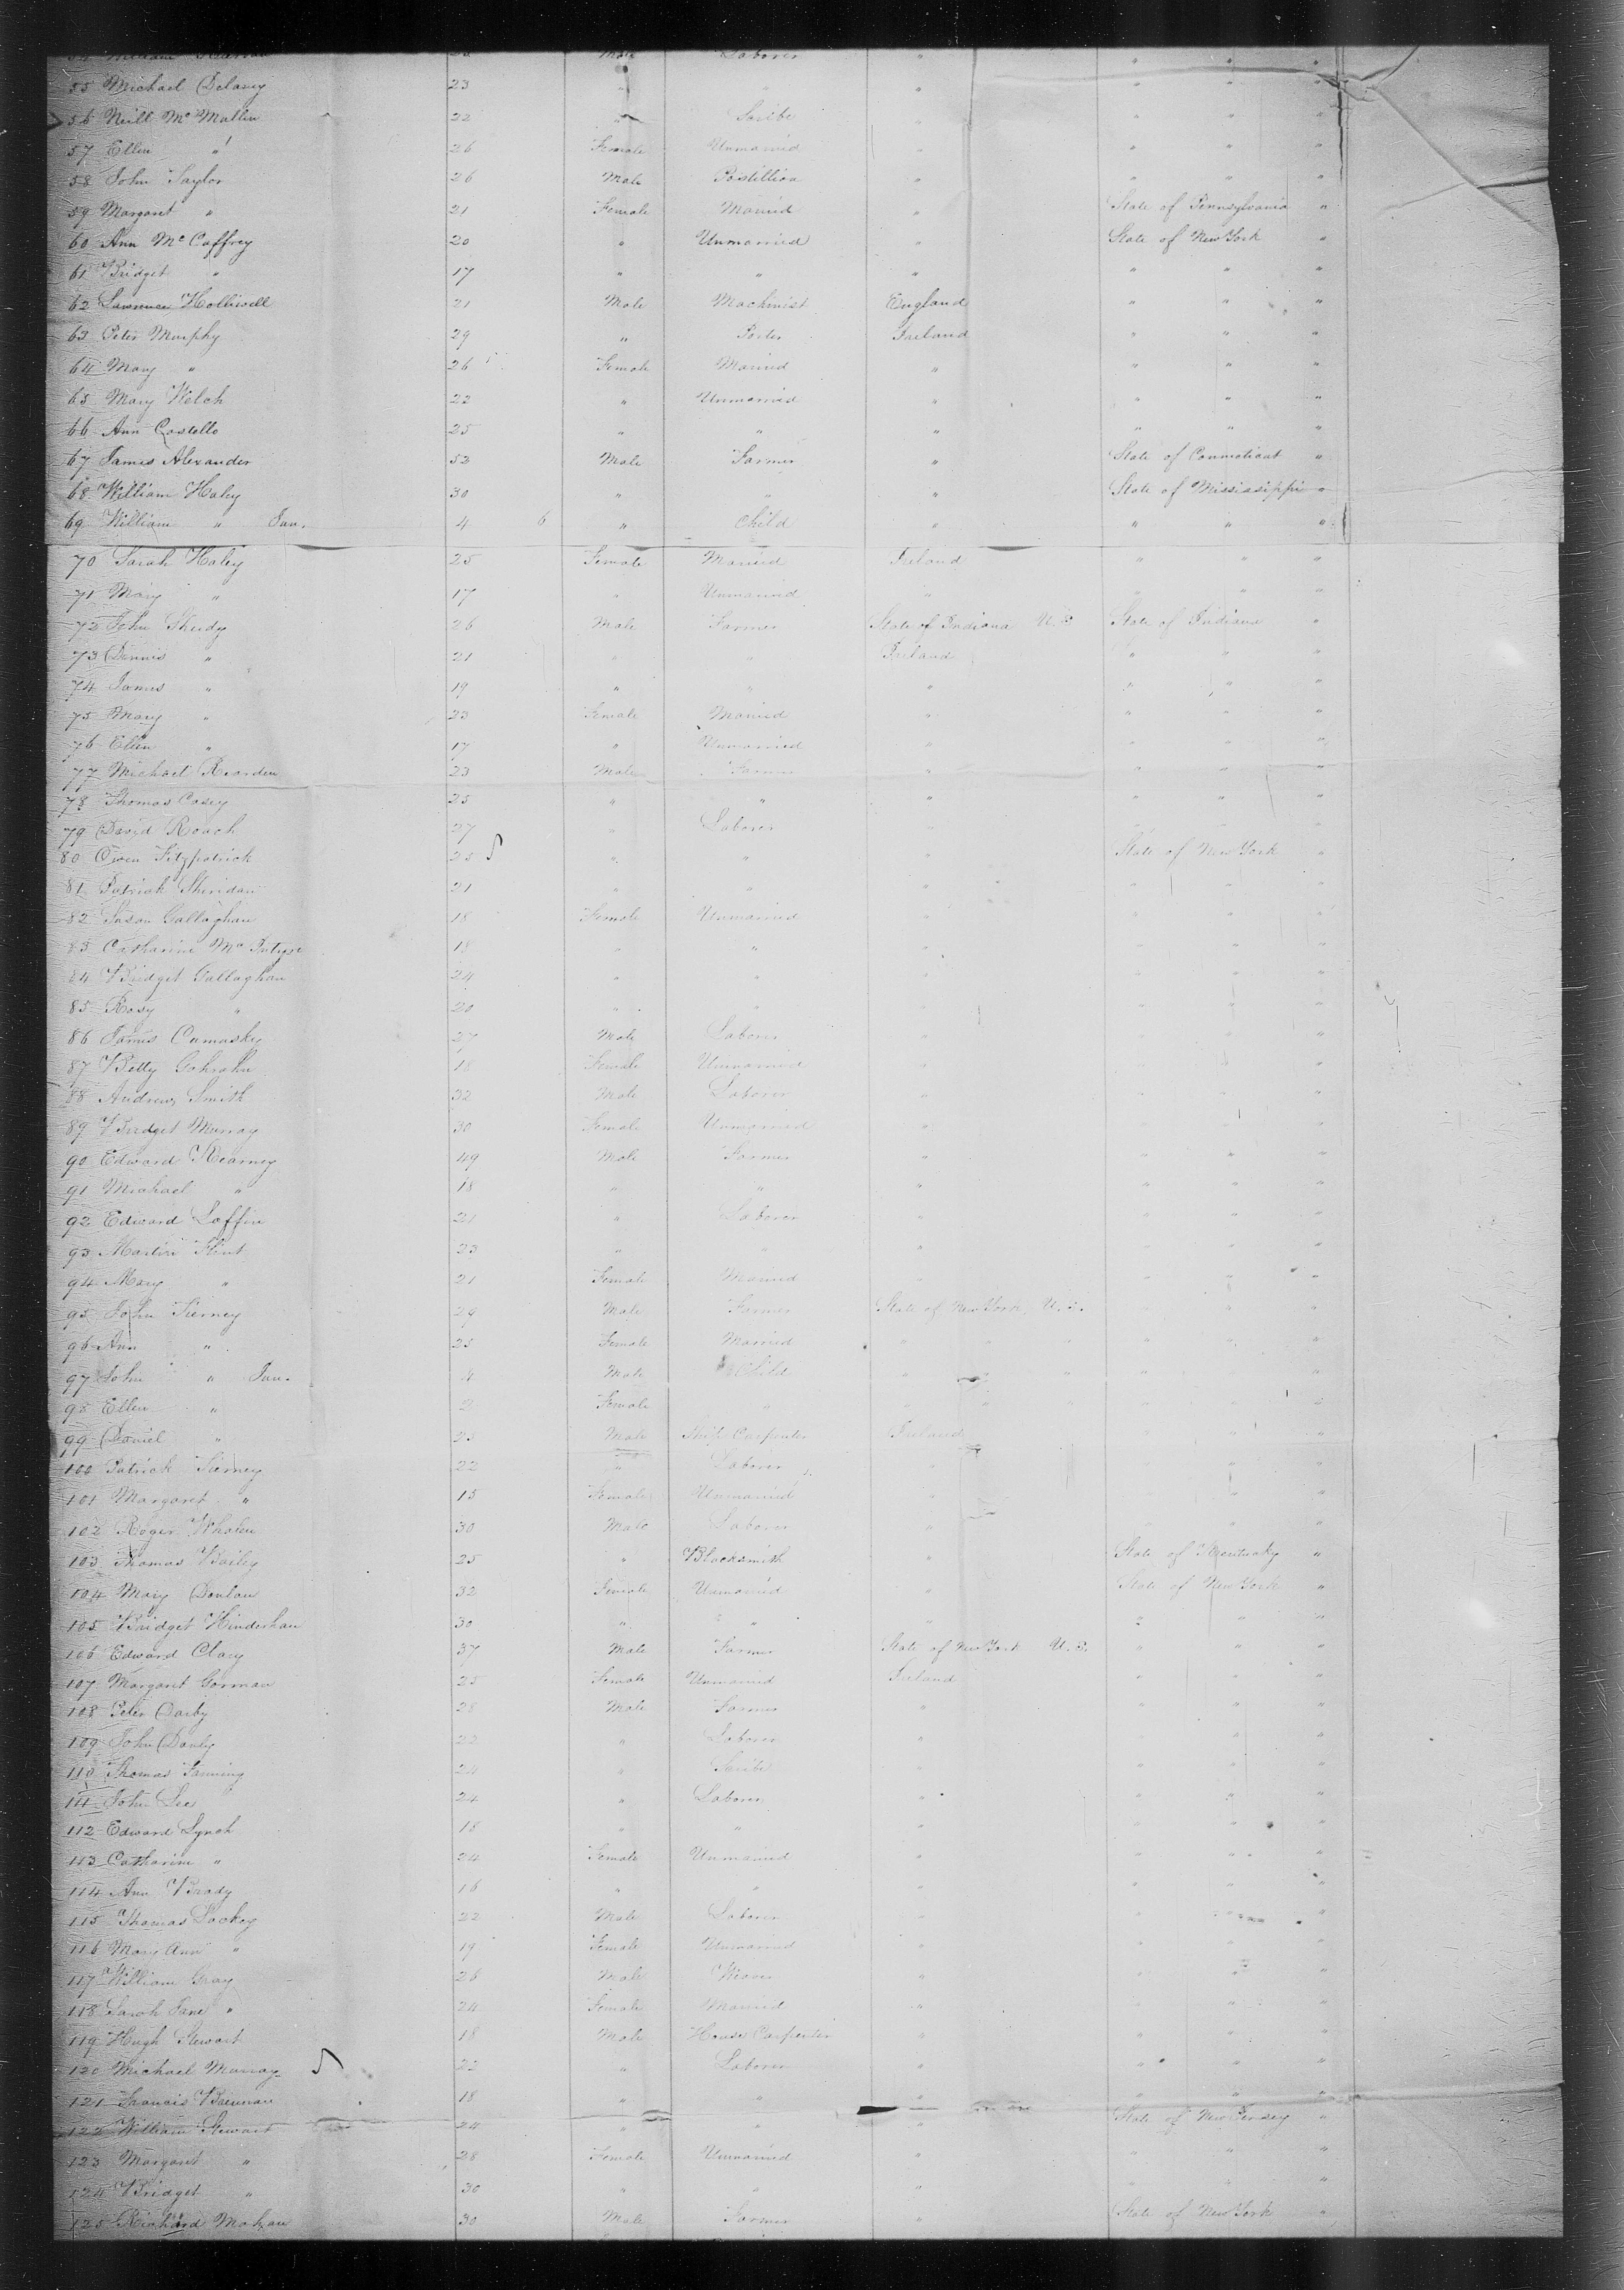 Male Laborer " " " "
55 Michael Delany 23 " " " " " "
56 Neill Mc Mallin 22 " Scribe " " " "
57 Ellen " 26 Female Unmarried " " " "
58 John Taylor 26 Male Postillion " " " "
59 Margaret " 21 Female Married " State of Pennsylvania "
60 Ann Mc Caffrey 20 " Unmarried " State of New York "
61 Bridget " 17 " " " " " "
62 Lawrence Holliwell 21 Male Machinist England " " "
63 Peter Murphy 29 " Porter Ireland " " "
64 Mary " 26 Female Married " " " "
65 Mary Welch 22 " Unmarried " " " "
66 Ann Costello 25 " " " " " "
67 James Alexander 52 Male Farmer " State of Connecticut "
68 William Haley 30 " " " State of Mississippi "
69 William " Jun. 4 6 " Child " " " "
70 Sarah Haley 25 Female Married Ireland " " "
71 Mary " 17 " Unmarried " " " "
72 John Sheedy 26 Male Farmer State of Indiana U.S. State of Indiana "
73 Dennis " 21 " " Ireland " " "
74 James " 19 " " " " " "
75 Mary " 23 Female Married " " " "
76 Ellen " 17 " Unmarried " " " "
77 Michael Rearden 23 Male Farmer " " " "
78 Thomas Casey 25 " " " " " "
79 David Roach 27 " Laborer " " " "
80 Owen Fitzpatrick 25 " " " State of New York "
81 Patrick Sheridan 21 " " " " " "
82 Susan Gallaghan 18 Female Unmarried " " " "
83 Catharine Mc Intyre 18 " " " " " "
84 Bridget Gallaghan 24 " " " " " "
85 Rosy " 20 " " " " " "
86 James Cumasky 27 Male Laborer " " " "
87 Betty 18 Female Unmarried " " " "
88 Andrew Smith 32 Male Laborer " " " "
89 Bridget Murray 30 Female Unmarried " " " "
90 Edward Kearney 49 Male Farmer " " " "
91 Michael " 18 " " " " " "
92 Edward Laffin 21 " Laborer " " " "
93 Martin Flint 23 " " " " " "
94 Mary " 21 Female Married " " " "
95 John Tierney 29 Male Farmer State of New York U.S. " " "
96 Ann " 25 Female Married " " " " " "
97 John " Jun. 4 Male Child " " " " " "
98 Ellen " 2 Female " " " " " " "
99 Daniel " 25 Male Ship Carpenter Ireland " " "
100 Patrick Tierney 22 " Laborer " " " "
101 Margaret " 15 Female Unmarried " " " "
102 Roger Whalen 30 Male Laborer " " " "
103 Thomas Bailey 25 " Blacksmith " State of Kentucky "
104 Mary Donlan 32 Female Unmarried " State of New York "
105 Bridget Hinderhan 30 " " " " " "
106 Edward Clary 37 Male Farmer State of New York U.S. " " "
107 Margaret Gorman 25 Female Unmarried Ireland " " "
108 Peter Darby 28 Male Farmer " " " "
109 John Darby 22 " Laborer " " " "
110 Thomas Fanning 24 " Scribe " " " "
111 John Lee 24 " Laborer " " " "
112 Edward Lynch 18 " " " " " "
113 Catharine " 24 Female Unmarried " " " "
114 Ann Brady 16 " " " " " "
115 Thomas Lackey 22 Male Laborer " " " "
116 Mary Ann " 19 Female Unmarried " " " "
117 William Gray 26 Male " " " "
118 Sarah Jane " 24 Female Married " " " "
119 Hugh Stewart 18 Male House Carpenter " " " "
120 Michael Murray 22 " Laborer " " " "
121 Francis Brennan 18 " " " " " "
122 William Stewart 24 " " " State of New Jersey "
123 Margaret " 28 Female Unmarried " " " "
124 Bridget " 30 " " " " " "
125 Richard Mahan 30 Male Farmer " State of New York "